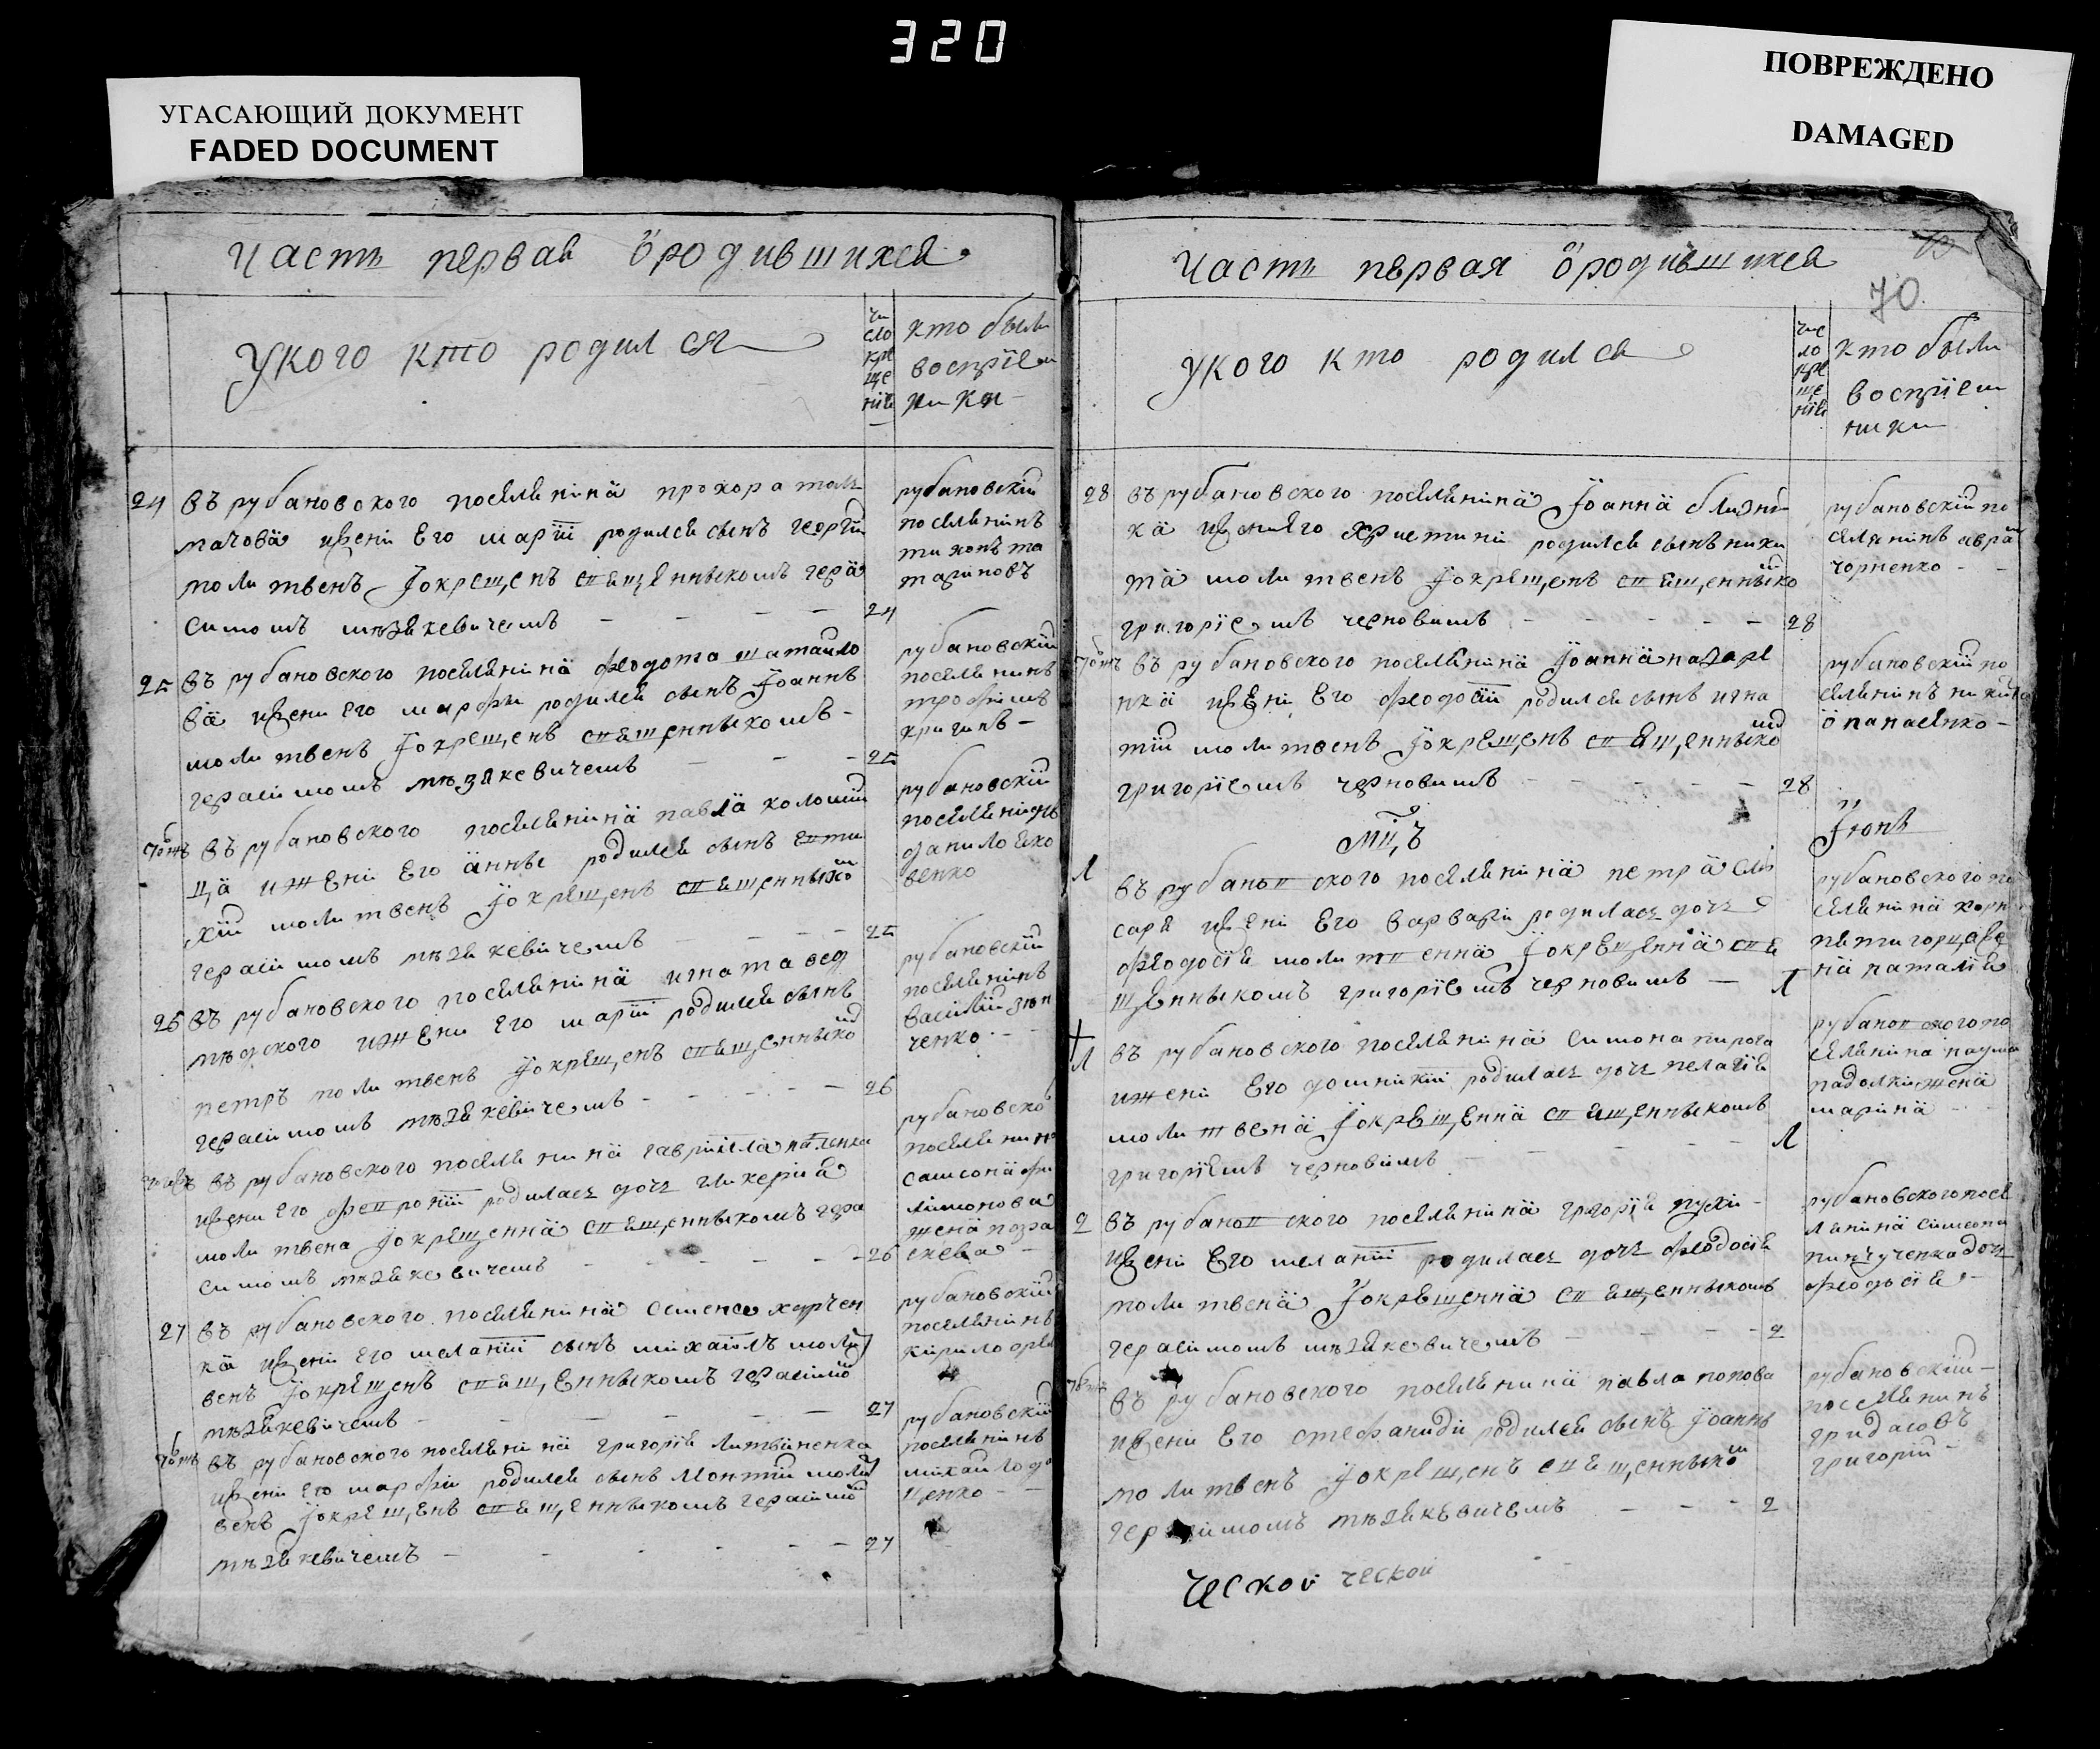 320
УГАСАЮЩИЙ ДОКУМЕНТ
FADED DOCUMENT
ПОВРЕЖДЕНО
DAMAGED
Часть первая о родившихся
У кого кто родился
чи
сло
кре
ще
нія
кто были
воспріем
ники
24 въ рубановского поселянина прохора толь
мачова и жени его маріи родился сынъ георгій
молитвенъ и окрещенъ священникомъ гера
симомъ мъзякевичемъ 24
рубановскій
поселянинъ
тихонъ та
тариновъ
25 въ рубановского поселянина феодота шатаило
ва и жени его марфи родился сынъ Іоаннъ
молитвенъ и окрещенъ священникомъ
герасимомъ мъзякевичемъ 25
рубановскій
поселянинъ
трофимъ
кригинъ
тожъ въ рубановского поселянина павла коломій
ца и жени его анны родился сынъ евти
хій молитвенъ и окрещенъ священнико
герасимомъ мъзякевичемъ 25
рубановскій
поселянинъ
данило яко
венко
26 въ рубановского поселянина игната вед
мѣдского и жени его маріи родился сынъ
петръ молитвенъ и окрещенъ священнико
герасимомъ мъзякевичемъ 26
рубановскій
поселянинъ
василій
ченко
въ рубановского поселянина гавріила
и жени его февроніи родилась дочь гликерія
молитвена и окрещенна священникомъ гера
симомъ мъзякевичемъ 26
рубановско
поселянина
самсона фи
лимонова
жена пара
скева
27 въ рубановского поселянина семена харчен
ка и жени его меланіи сынъ михаилъ молит
венъ и окрещенъ священникомъ герасимо
мъзякевичемъ 27
рубановскій
поселянинъ
кирило
тожъ въ рубановского поселянина григорія литвиненка
и жени его марфи родился сынъ леонтій молит
венъ и окрещенъ священникомъ герасимо
мъзякевичемъ 27
рубановскій
поселянинъ
михаило
ценко
Часть первая о родившихся
70
У кого кто родился
чис
ло
кре
ще
нія
кто были
воспріем
ники
28 въ рубановского поселянина Іоанна близню
ка и жени его христини родился сынъ ники
та молитвенъ и окрещенъ священнико
григоріемъ черновимъ 28
рубановскій по
селянинъ авра
чорненко
тожъ въ рубановского поселянина Іоанна назаре
нка и жени его феодосіи родился сынъ игна
тій молитвенъ и окрещенъ священнико
григоріемъ черновимъ 28
рубановскій по
селянинъ никита
опанасенко
мц,ъ
Іюнь
1 въ рубановского поселянина петра слю
саря и жени его варвари родилась дочь
феодосія молитвенна и окрещенна свя
щенникомъ григоріемъ черновимъ 1
рубановского по
селянина корн
пятигорца же
на наталія
1 въ рубановского поселянина симона пирога
и жени его домникіи родилась дочь пелагія
молитвена и окрещенна священникомъ
григоріемъ черновимъ 1
рубановского по
селянина наума
падалки жена
марина
2 въ рубановского поселянина григорія
и жени его меланіи родилась дочь феодосія
молитвена и окрещенна священникомъ
герасимомъ мъзякевичемъ 2
рубановского посе
лянина симеона
пинчученка дочь
феодосія
въ рубановского поселянина павла попова
и жени его стефаниди родился сынъ Іоаннъ
молитвенъ и окрещенъ священнико
герасимомъ мъзякевичемъ 2
рубановскій
поселянинъ
гридасовъ
григорій
ческой ческой